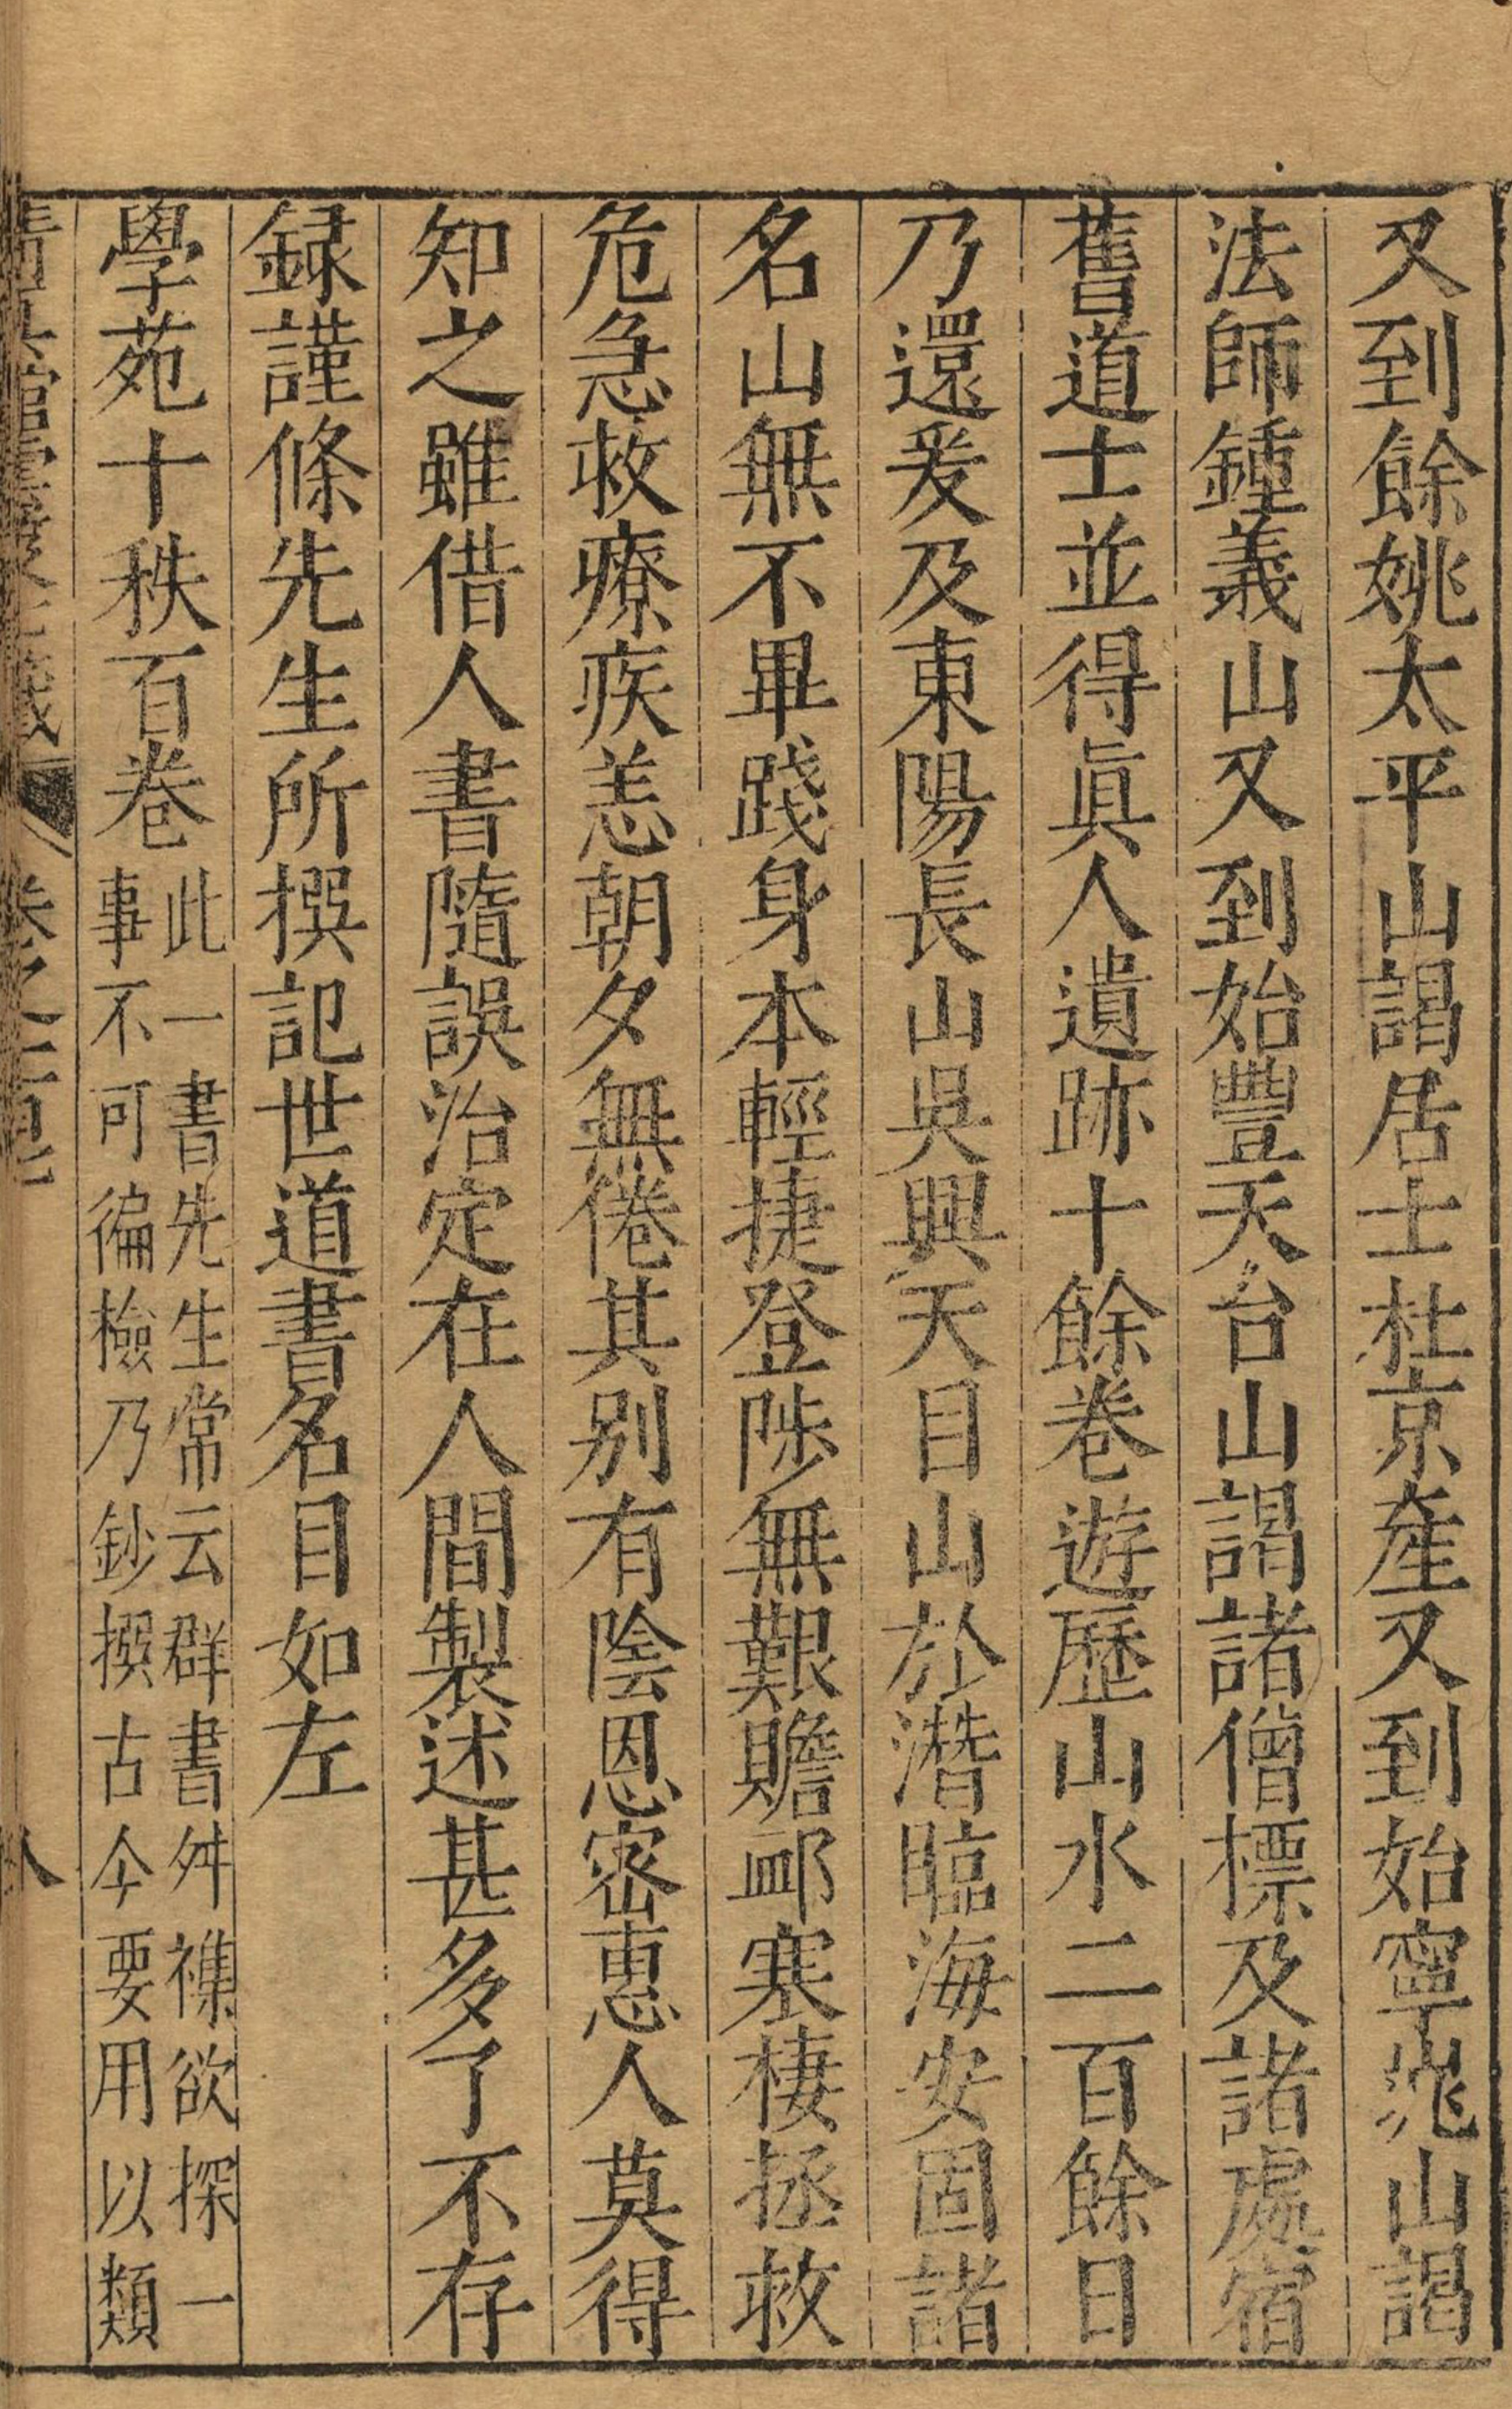 又到餘姚太平山謁居士杜京產又到始寧𡵆山謁
法師鍾義山又到始豐天台山謁諸僧標及諸處宿
舊道士並得眞人遺跡十餘卷遊歷山水二百餘日
乃還爰及東陽長山吳興天目山於潛臨海安固諸
名山無不畢踐身本輕捷登陟無艱贍䘏寒棲拯救
危急救療疾恙朝夕無倦其别有陰恩密惠人莫得
知之雖借人書隨誤治定在人間製述甚多了不存
録謹條先生所撰記世道書名目如左
學苑十秩百卷此一書先生常云群書舛襍欲探一
事不可徧檢乃鈔撰古今要用以類